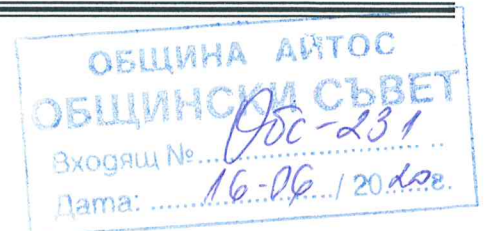 ОБЩИНА АЙТОС
ОБЩИНСКИ СЪВЕТ
Входящ №..... Обс-231
Дата: ..... 16-06 / 2020г.